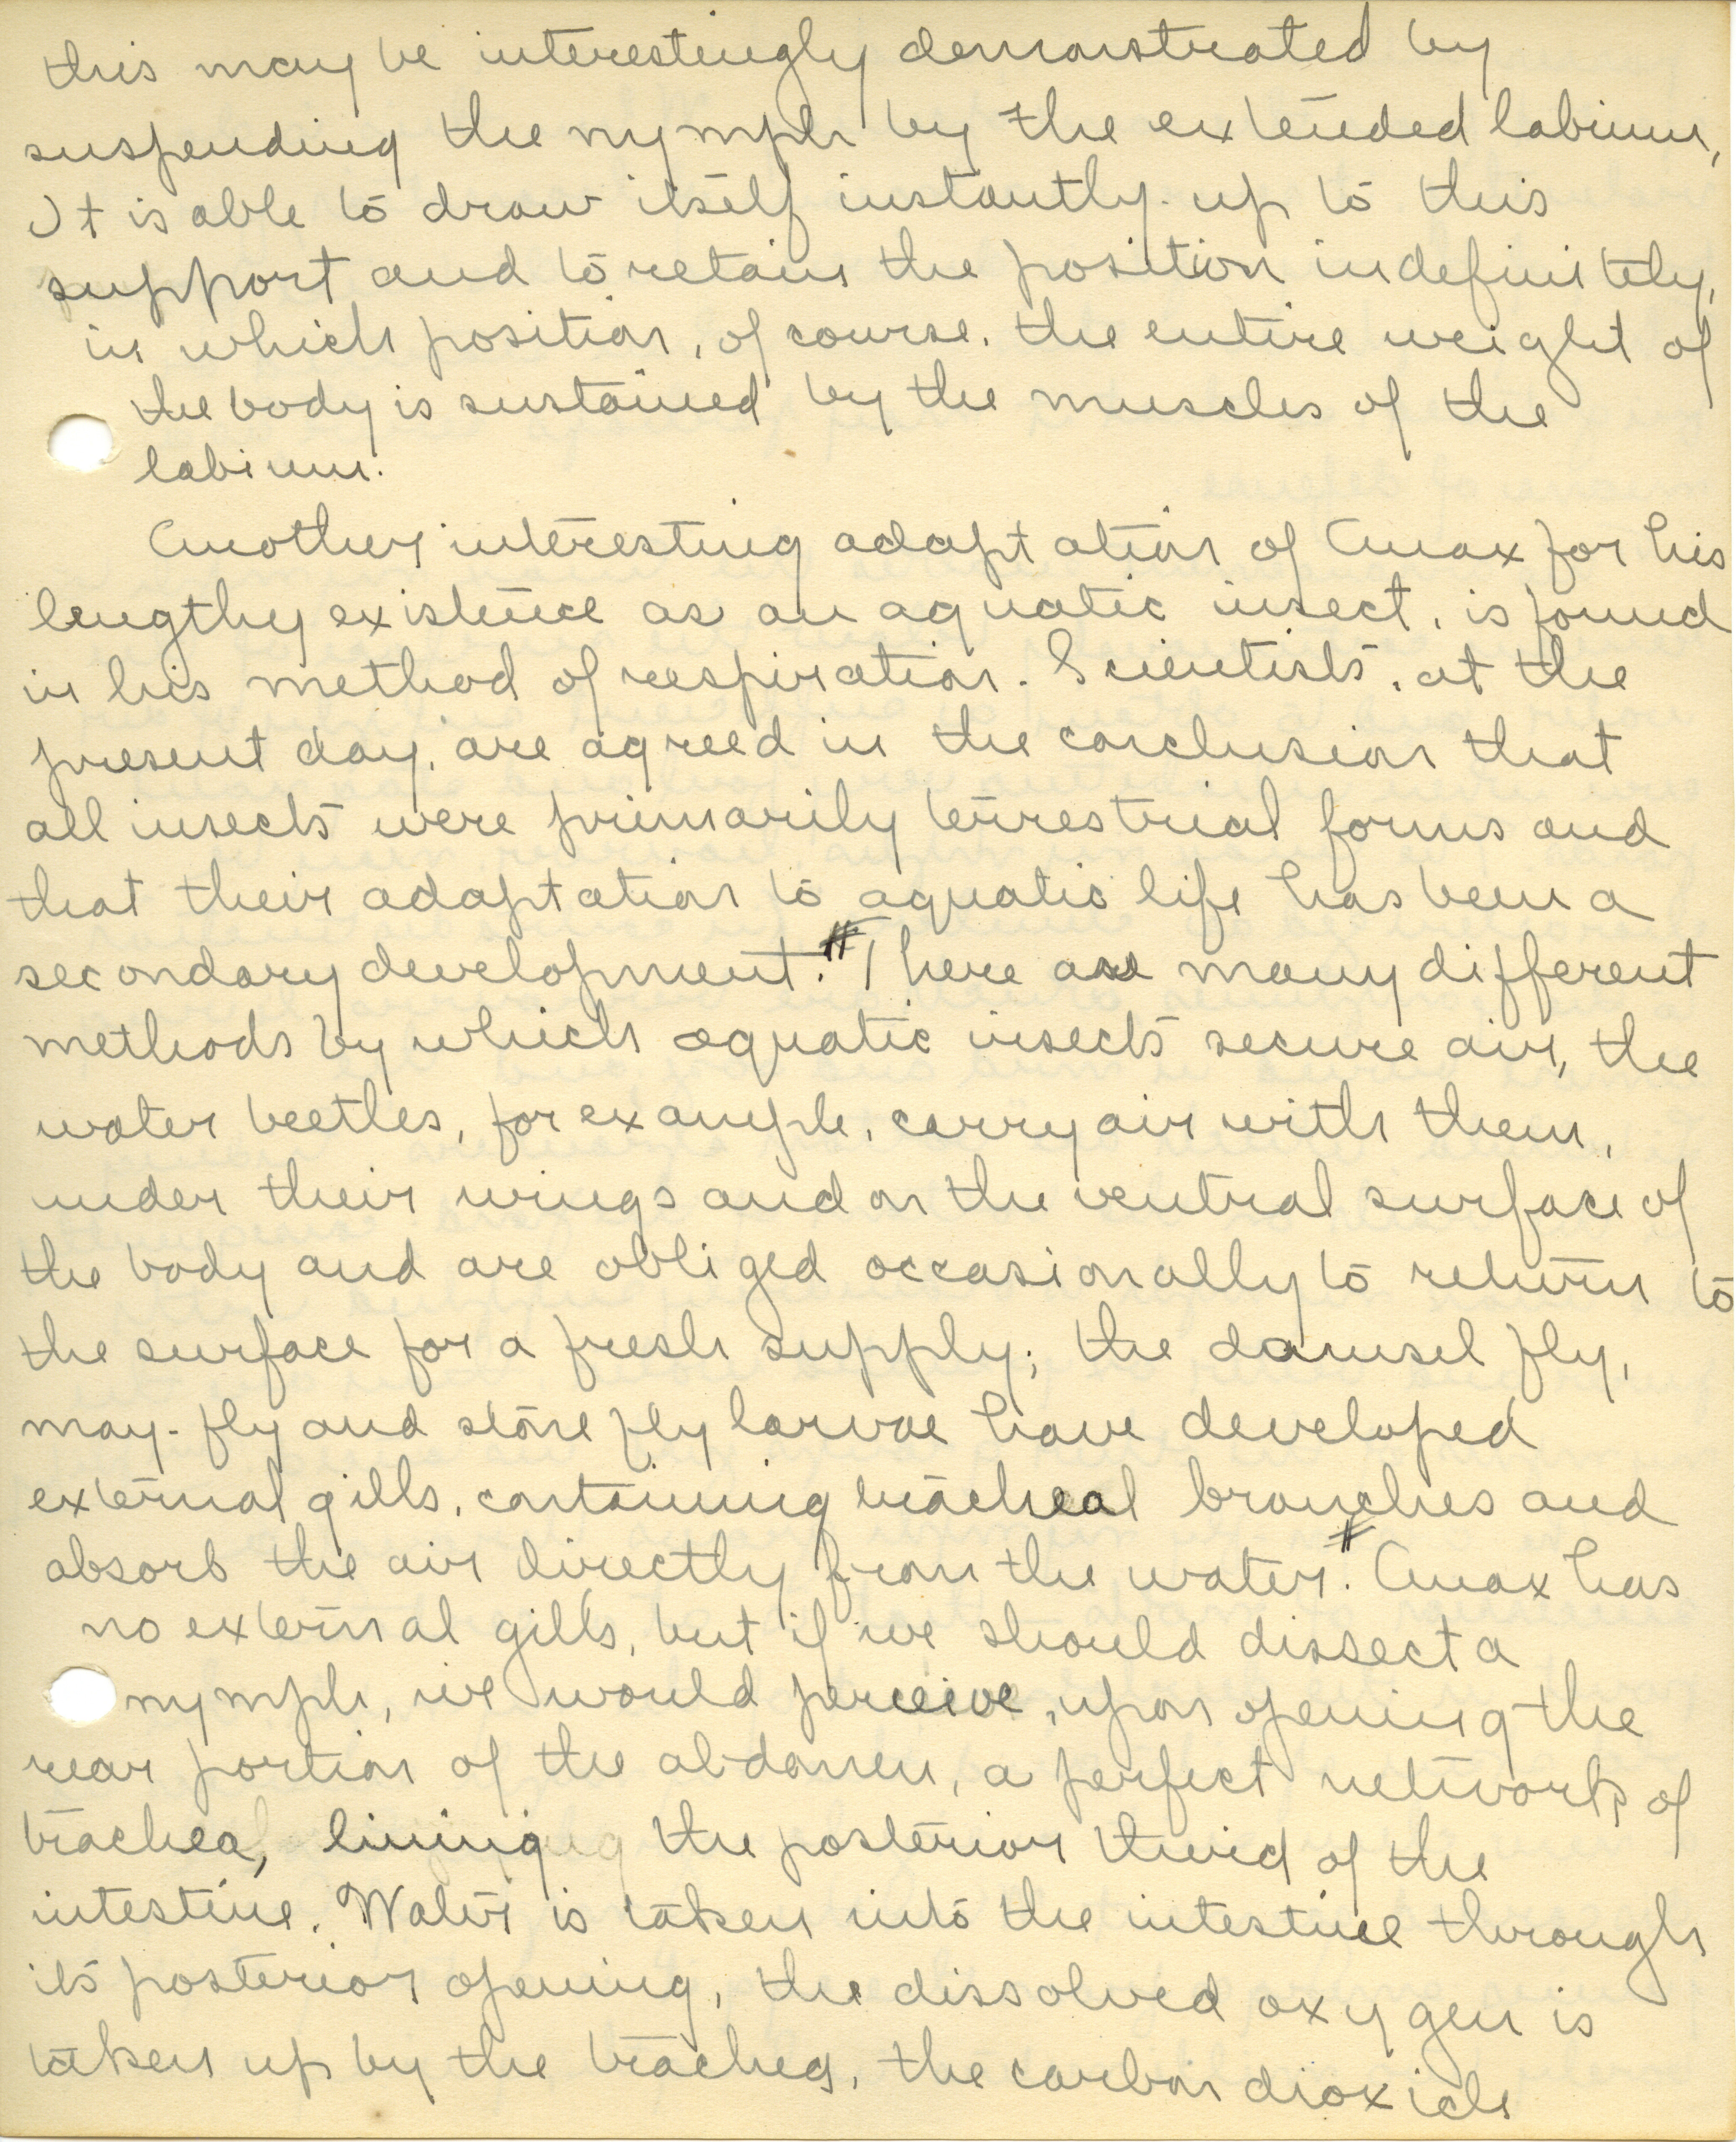 this may be interestingly demonstrated by
suspending the nymph by the extended labium,
It is able to draw itself instantly up to this
support and to retain the position indefinitely,
in which position, of course, the entire weight of
the body is sustained by the muscles of the
labium.
Another interesting adaptation of Anax for his
lengthy existence as an aquatic insect, is found
in his method of respiration. Scientists, at the
present day, are agreed in the conclusion that
all insects were primarily terrestrial forms and
that their adaptation to aquatic life has been a
secondary development.# There are many different
methods by which aquatic insects secure air, the
water beetles, for example, carry air with them,
under their wings and on the ventral surface of
the body and are obliged occasionally to return to
the surface for a fresh supply; the damsel fly,
may-fly and stone fly larvae have developed
external gills, containing tracheal branches and
absorb the air directly from the water.# Anax has
no external gills, but if we should dissect a
nymph, we would perceive, upon opening the
rear portion of the abdomen, a perfect network of
trachea, lining the posterior third of the
intestine. Water is taken into the intestine through
its posterior opening, the dissolved oxygen is
taken up by the trachea, the carbon dioxide